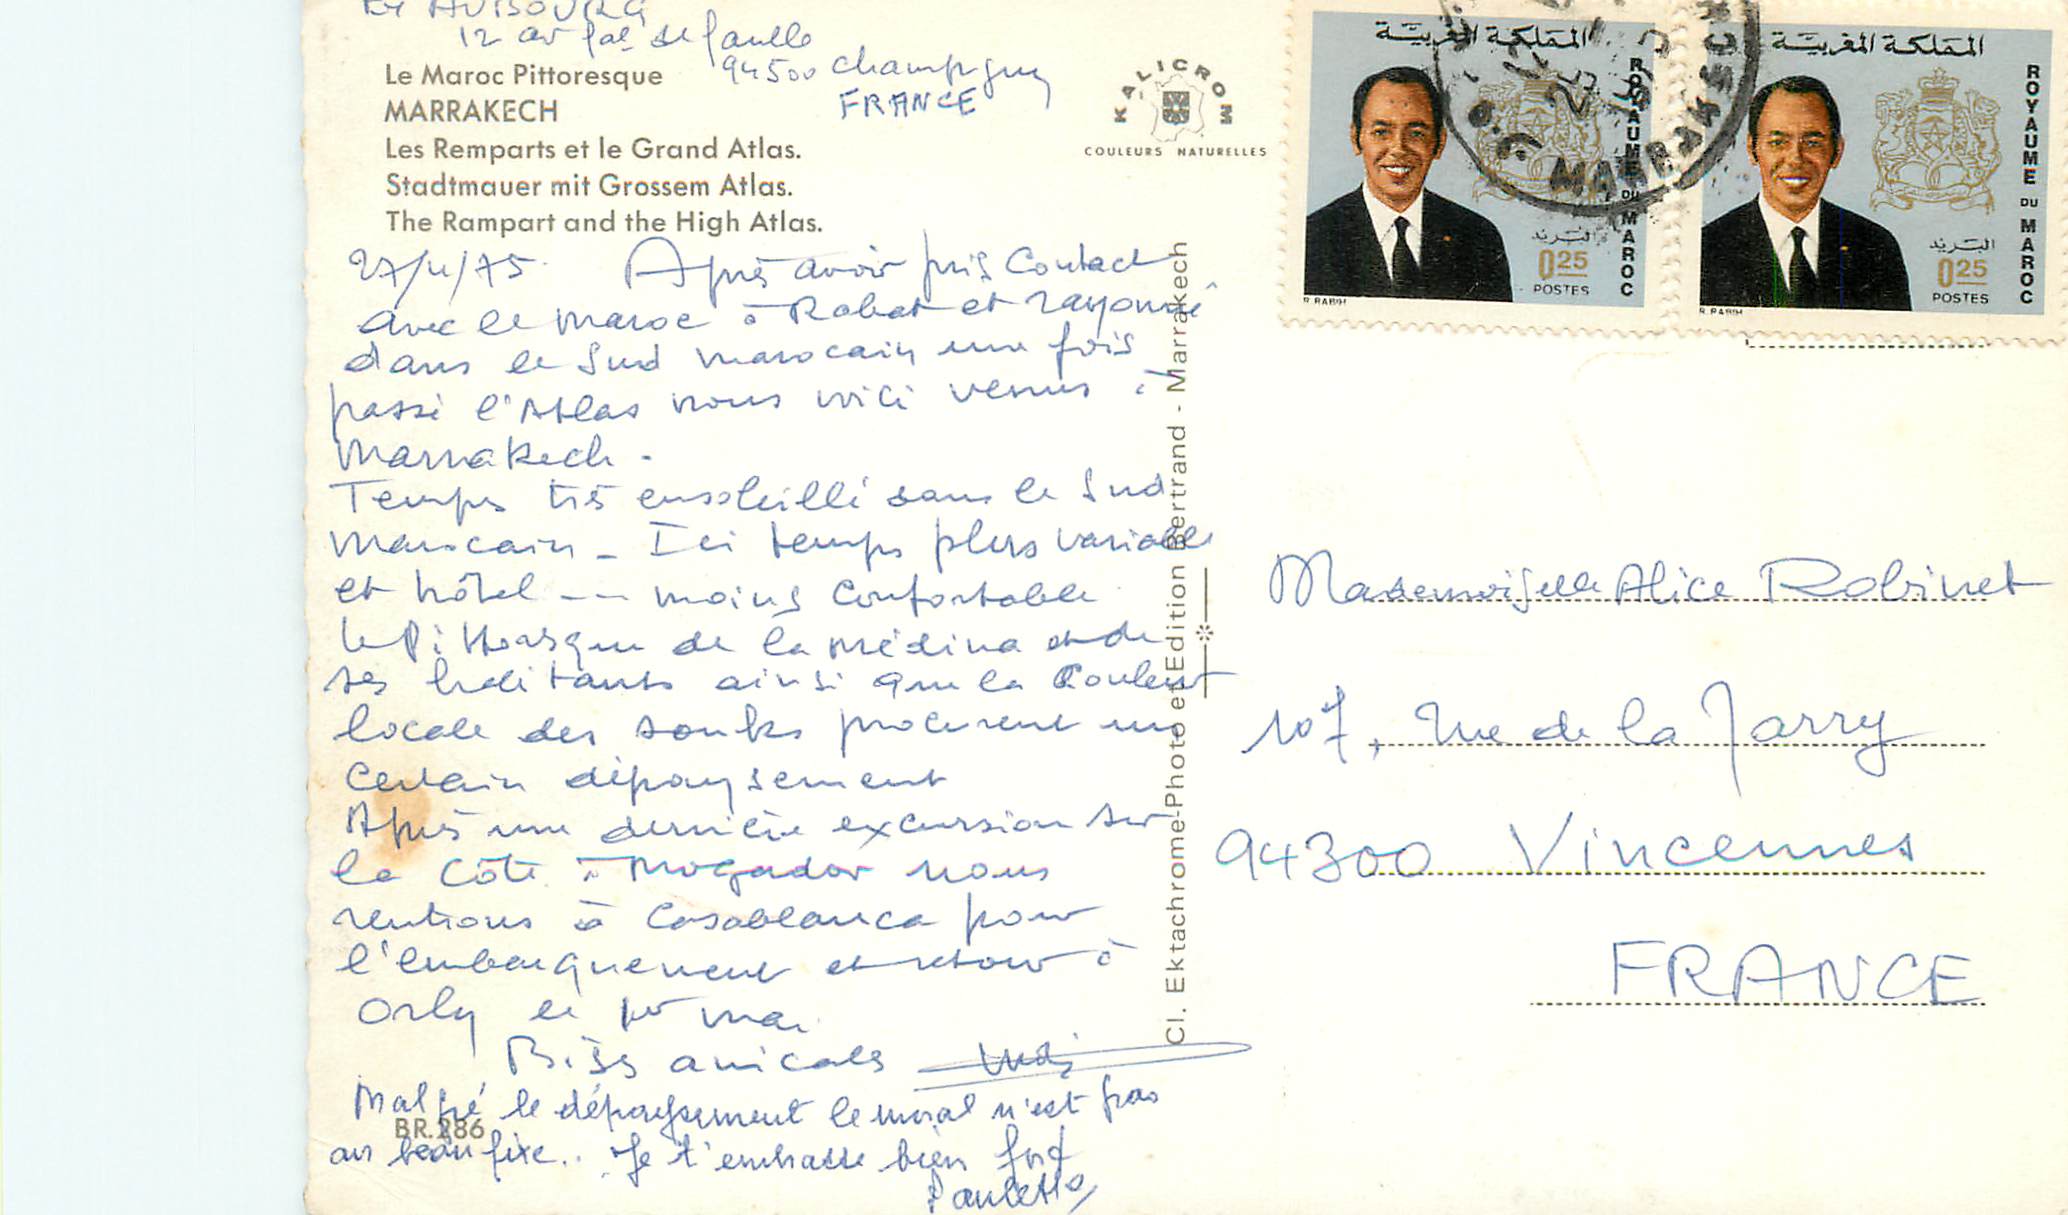 AUBOURG
12 av gal de gaulle
94500 Champigny
FRANCE
Le Maroc Pittoresque
MARRAKECH
Les Remparts et le Grand Atlas.
Stadtmauer mit Grossem Atlas.
The Rampart and the High Atlas.
KALICROM
COULEURS NATURELLES
27/4/75. Après avoir pris Contact
avec le Maroc à Rabat et rayonné
dans le Sud marocain une fois
passé l'Atlas nous voici venus à
Marrakech.
Temps très ensoleillé dans le Sud
Marocain - Ici temps plus variable
et hôtel -- moins confortable
le Pittoresque de la Médina et de
ses habitants ainsi que la Couleur
locale des souks procurent un
certain dépaysement
Après une dernière excursion sur
la Côte à Mogador nous
rentrons à Casablanca pour
l'embarquement et retour à
Orly le 1er mai
Bises amicales
Malgré le dépaysement le moral n'est pas
au beau fixe.. Je t'embrasse bien fort
Paulette
BR.286
Cl. Ektachrome-Photo et Edition Bertrand - Marrakech
المملكة المغربية
ROYAUME DU MAROC
البريد
0.25
POSTES
R. RABIH
المملكة المغربية
ROYAUME DU MAROC
البريد
0.25
POSTES
R. RABIH
MARRAKECH
Mademoiselle Alice Robinet
107, rue de la Jarry
94300 Vincennes
FRANCE